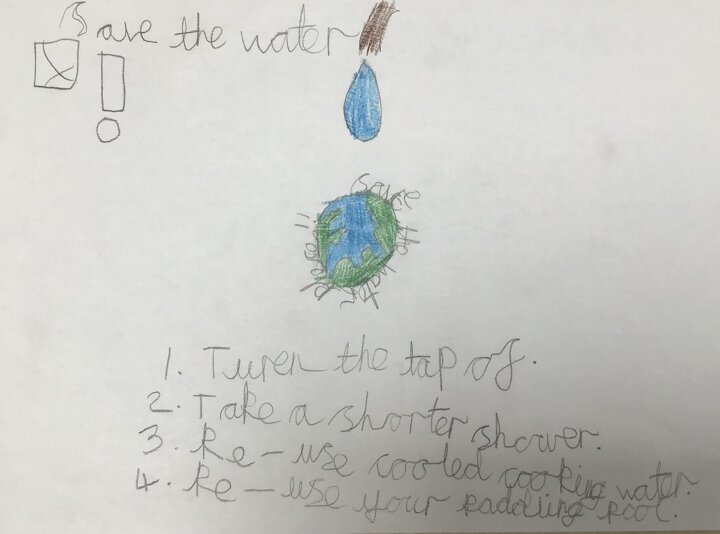 Save the water
!
Save the water!!
1. Turen the tap of.
2. Take a shorter shower.
3. Re-use cooled cooking water.
4. Re-use your paddling pool.